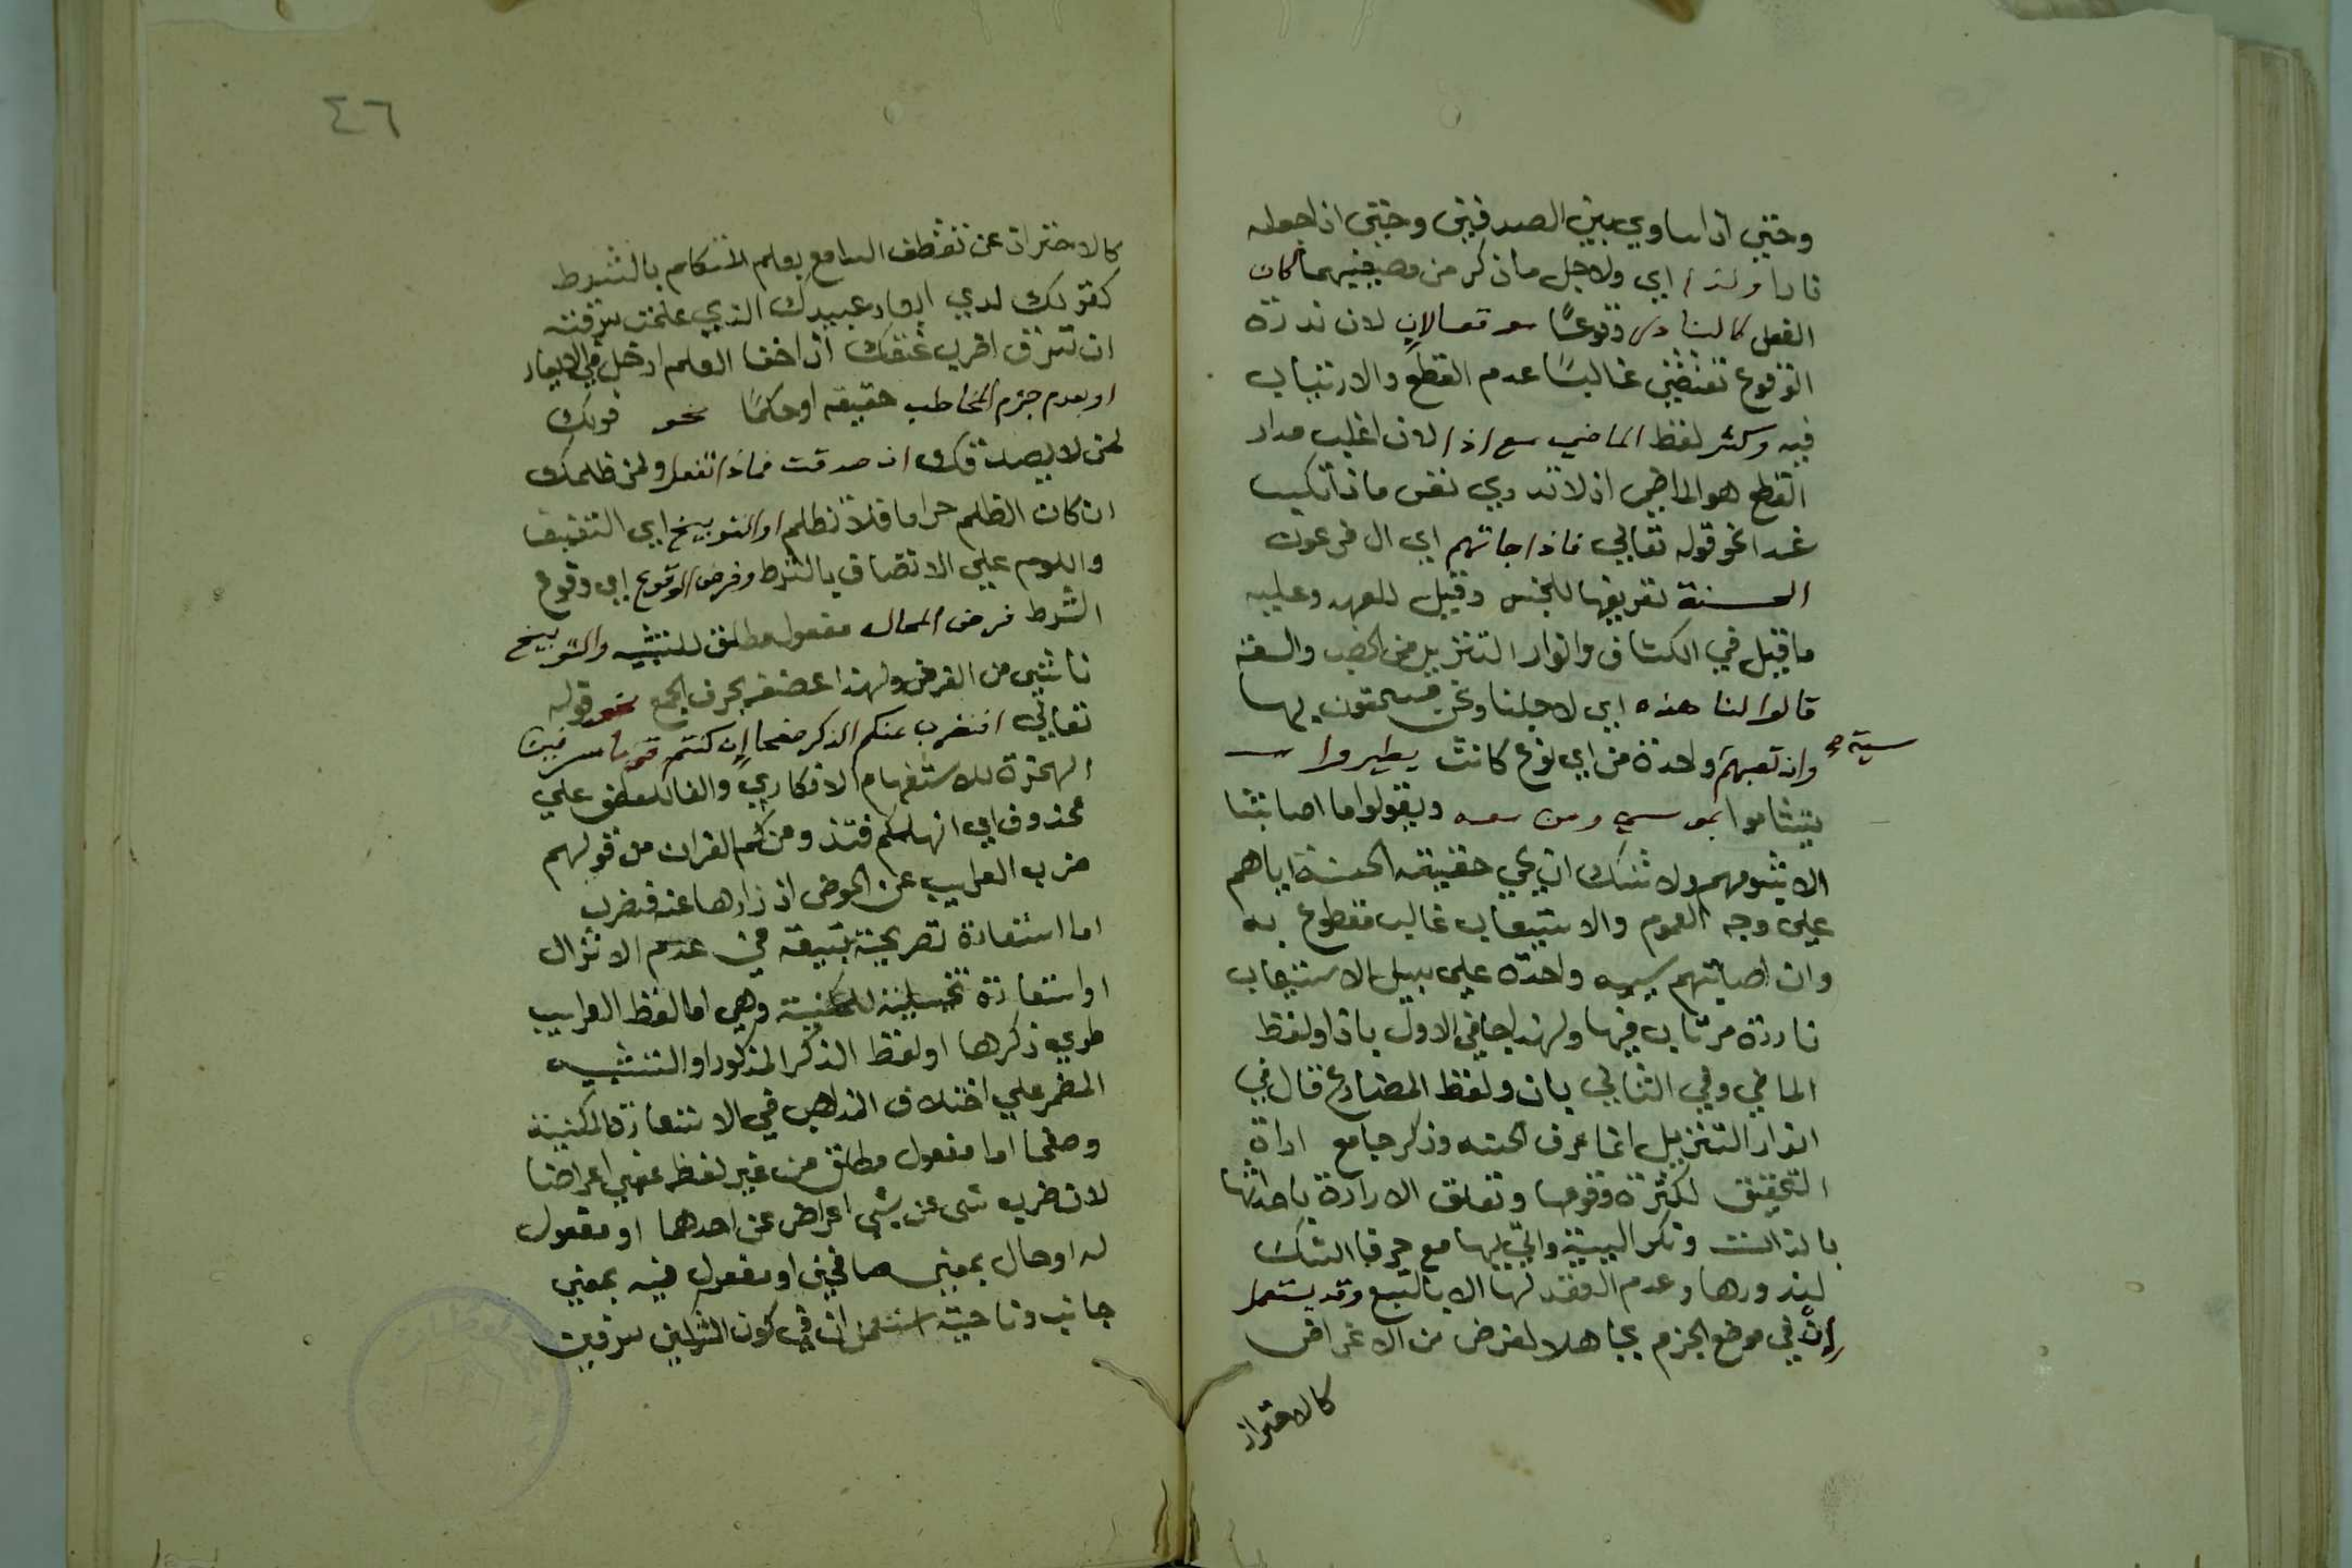 وحتي اذا ساوي بين الصدفين وحتي اذا جعله
نارا ولذا اي ولاجل ما ذكر من وصفيهما كان
الفعل كالنادر وقوعًا موقعا لان لان ندرة
الوقوع تقتضي غالبًا عدم القطع والارتياب
فيه وكثر لفظ الماضي مع اذا لان اغلب مدار
القطع هو الماضي اذ لا تدري نفس ماذا تكسب
غدا نحو قوله تعالي فاذا جاتهم اي ال فرعون
الحسنة تعريفها للجنس وقيل للعهد وعليه
ما قيل في الكشاف وانوار التنزيل من الخصب والسعة
قالوا لنا هذه اي لاجلنا ونحن مستحقون لها
وان تصبهم سيئة واحدة من اي نوع كانت يطيروا
يتشاموا بموسي ومن معه ويقولوا ما اصابتنا
الا بشومهم ولا شك ان مجي حقيقة الحسنة اياهم
علي وجه العموم والاستيعاب غالب مقطوع به
وان اصابتهم سيئه واحدة علي سبيل الاستيعاب
نادرة مرتاب فيها ولهذا جا في الاول باذا ولفظ
الماضي وفي الثاني بان ولفظ المضارع قال في
انوار التنزيل انما عرف الحسنه وذكرها مع اداة
التحقيق لكثرة وقوعها وتعلق الارادة باحداثها
بالذات ونكر السيئة واتي بها مع حرف الشك
لندورها وعدم القصد لها الا بالتبع وقد يستعمل
إن في موضع الجزم تجاهلا لغرض من الاغراض
كالاحتراز
٤٦
كالاحتراز عن تفطن السامع بعلم المتكلم بالشرط
كقولك لدي ابعاد عبيدك الذي علمت سرقته
ان تسرق اضرب عنقك اذ اخفا العلم ادخل في الابعاد
او بعدم جزم المخاطب حقيقة اوحكمًا نحو قولك
لمن لا يصدقك ان صدقت فماذا تفعل ولمن ظلمك
ان كان الظلم حراما فلا تظلم او التوبيخ اي التعنيف
واللوم علي الاتصاف بالشرط وفرض الوقوع اي وقوع
الشرط فرض المحال مفعول مطلق للتشبيه والتوبيخ
ناشئ من الفرض ولهذا عطفه بحرف الجمع نحو قوله
تعالي افنضرب عنكم الذكر صفحا إن كنتم قوما مسرفين
الهمزة للاستفهام الانكاري والفا للعطف علي
محذوف اي انهملكم فنذود عنكم القران من قولهم
ضرب الغرايب عن الحوض اذا زادها عنه فنضرب
اما استعارة تصريحية تبعية في عدم الانزال
او استعارة تخييلية للمكنية وهي اما لفظ الغرايب
طوي ذكرها او لفظ الذكر المذكور او التشبيه
المضمر علي اختلاف المذاهب في الاستعارة المكنية
وصفحا اما مفعول مطلق من غير لفظه بمعني اعراضا
لان ضرب شي عن شي اعراض عن احدهما او مفعول
له او حال بمعني صافحين او مفعول فيه بمعني
جانب وناحية استعمل ان في كون المشركين مسرفين